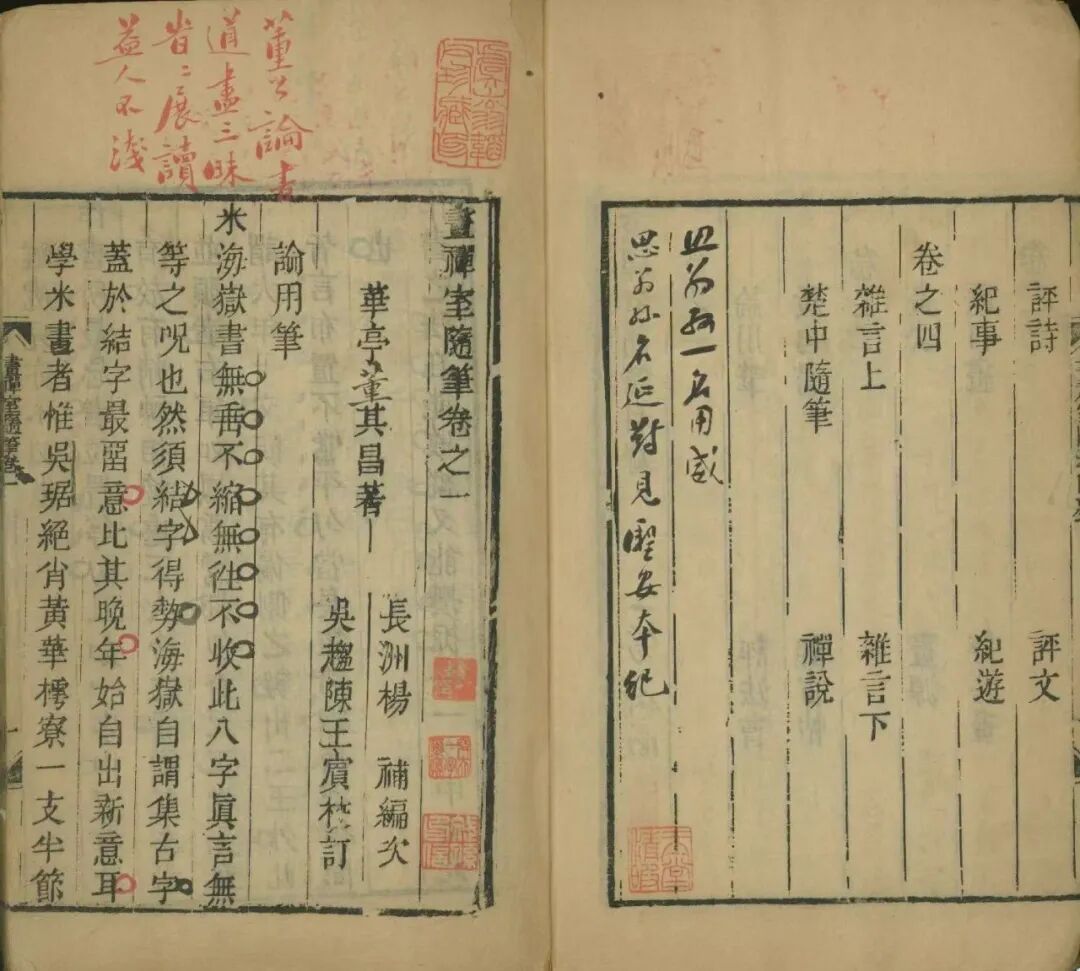 評詩 評文
紀事 紀遊
卷之四
雜言上 雜言下
楚中隨筆 禪說
一名用威
思翁孫名廷對見聖安本紀
董公論書
道畫三昧
旹二展讀
益人不淺
畫禪室隨筆卷之一
華亭董其昌著 長洲楊 補編次
吳趨陳王賓校訂
論用筆
米海嶽書無垂不縮無徃不收此八字眞言無
等之呪也然須結字得勢海嶽自謂集古字
蓋於結字最畱意比其晚年始自出新意耳
學米畫者惟吳琚絕肖黃華樗寮一支半節
畫禪室隨筆卷一